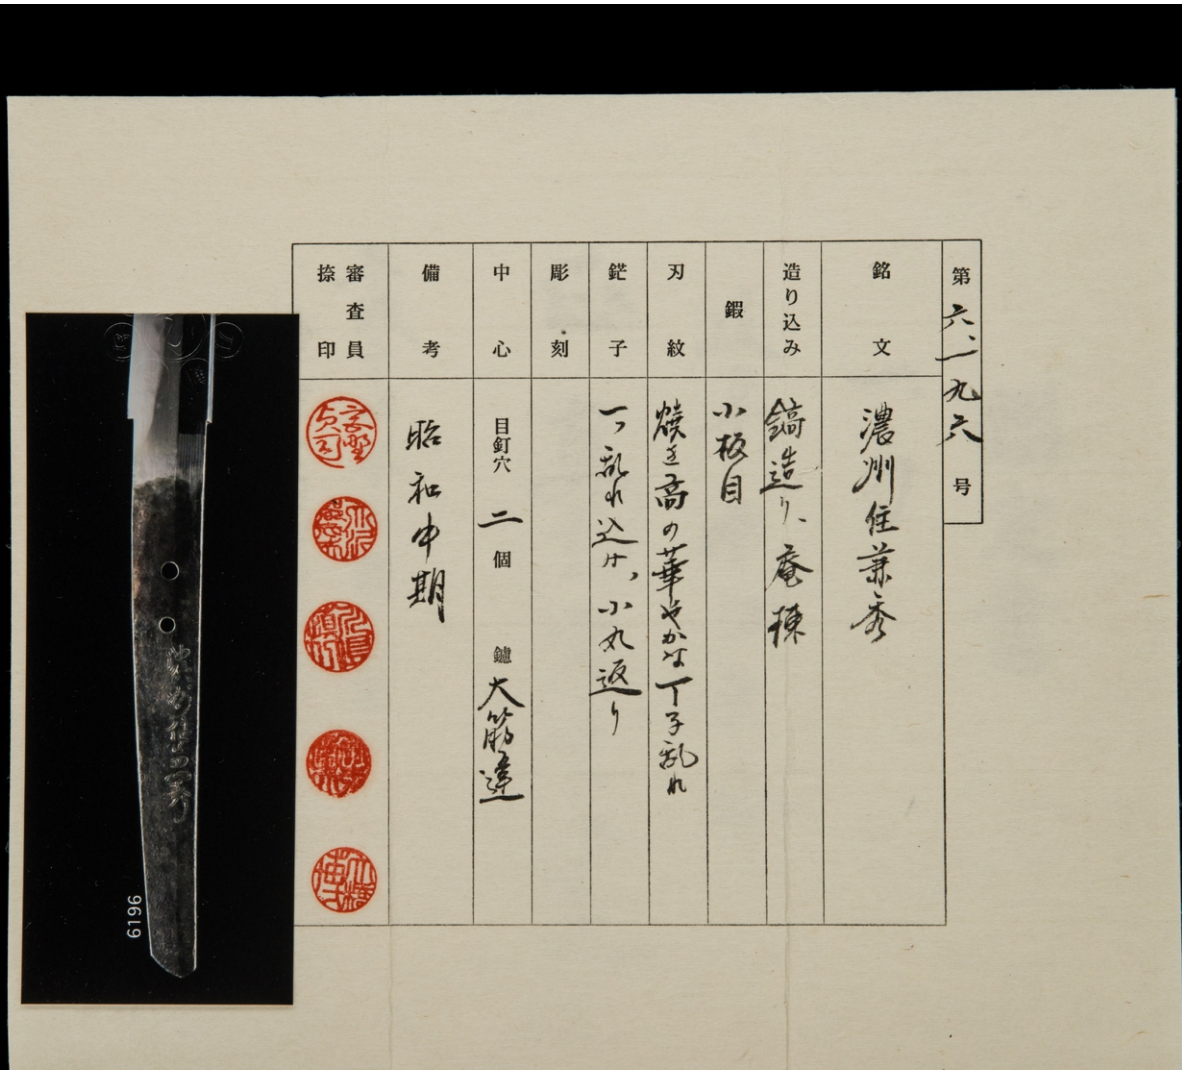 第六、一九六号
銘文
濃州住兼秀
造り込み
鎬造り、庵棟
鍜
小板目
刃紋
焼き高の華やかな丁子乱れ
鋩子
一つ乱れ込み、小丸返り
彫刻
中心
目釘穴 二 個 鑢 大筋違
備考
昭和中期
審査員
捺印
6196